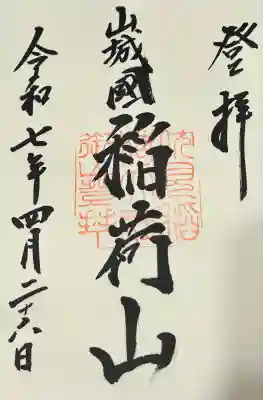 登拝
山城國稲荷山
令和七年四月二十八日